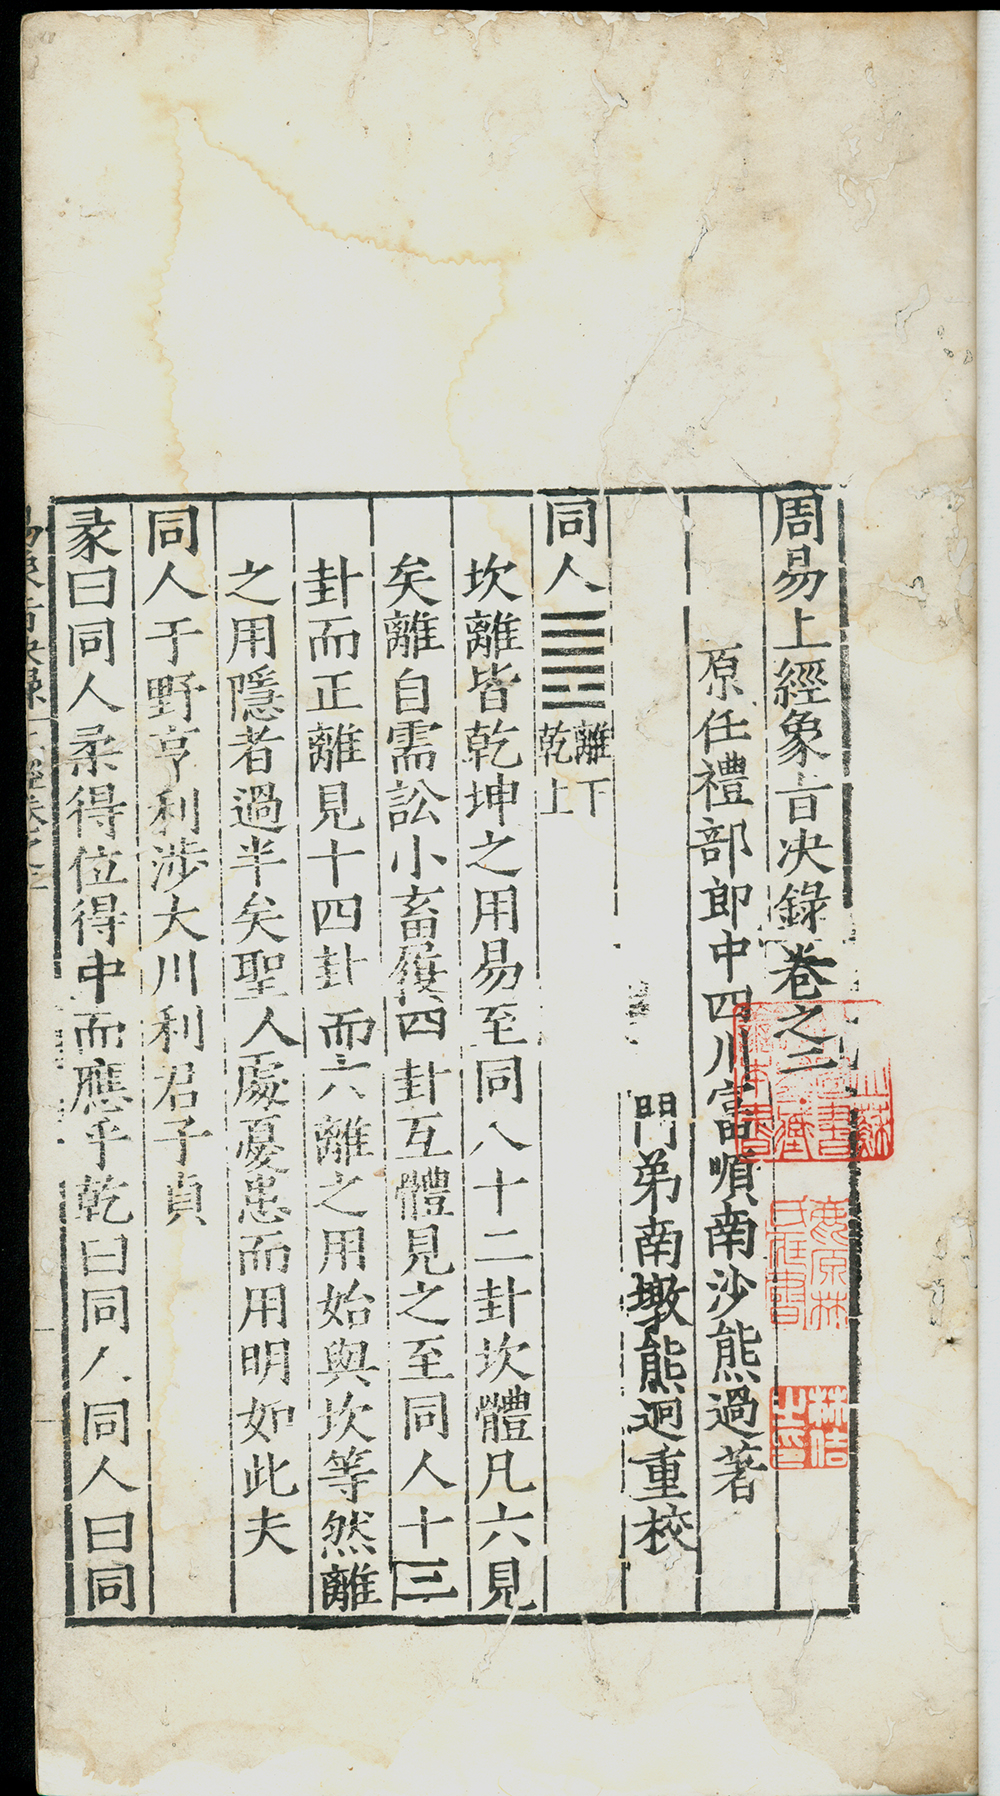 周易上經象旨决錄卷之二
原任禮部郎中四川富順南沙熊過著
門弟南墩熊迥重校
同人䷌離下乾上
坎離皆乾坤之用易至同人十二卦坎體凡六見
矣離自需訟小畜履四卦互體見之至同人十三
卦而正離見十四卦而六離之用始與坎等然離
之用隱者過半矣聖人處憂患而用明如此夫
同人于野亨利涉大川利君子貞
彖曰同人柔得位得中而應乎乾曰同人同人曰同
鹿原林氏藏書
林佶之印